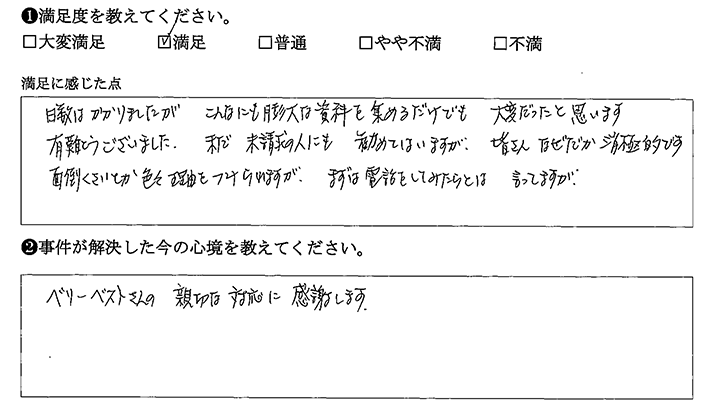 ❶満足度を教えてください。
□大変満足 ☑満足 □普通 □やや不満 □不満
満足に感じた点
日数はかかりましたが こんなにも膨大な資料を集めるだけでも 大変だったと思います
有難うございました。 まだ 未請求の人にも 勧めてはいますが、 皆さん なぜだか 消極的です
面倒くさいとか色々理由をつけられますが、 まずは電話をしてみたらとは 言ってますが、
❷事件が解決した今の心境を教えてください。
ベリーベストさんの 親切な 対応に 感謝します。